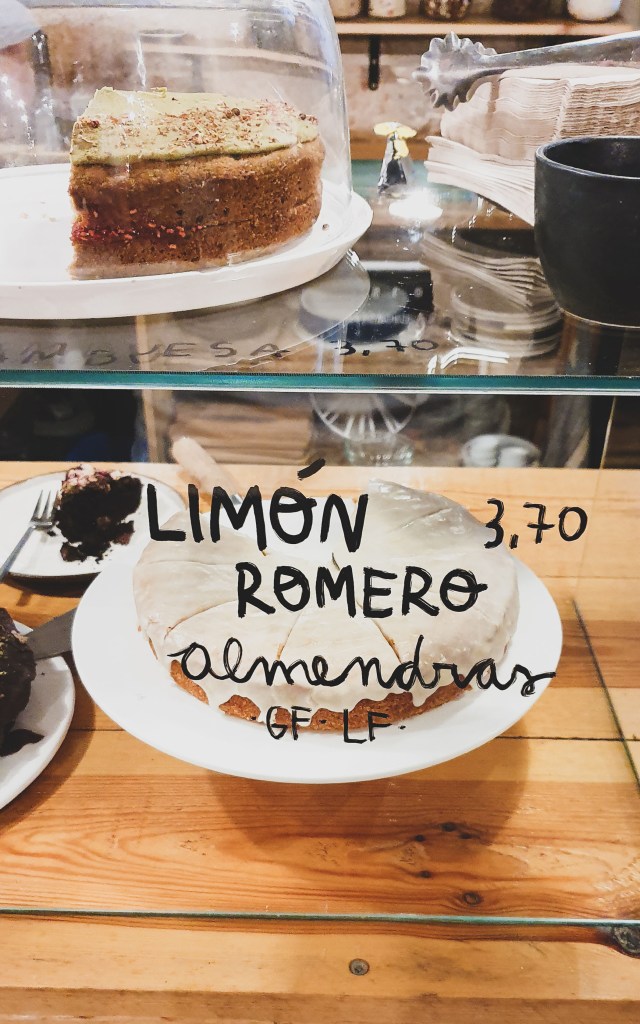 AMBUESA 3,70
LIMÓN 3,70
ROMERO
almendras
GF· LF·